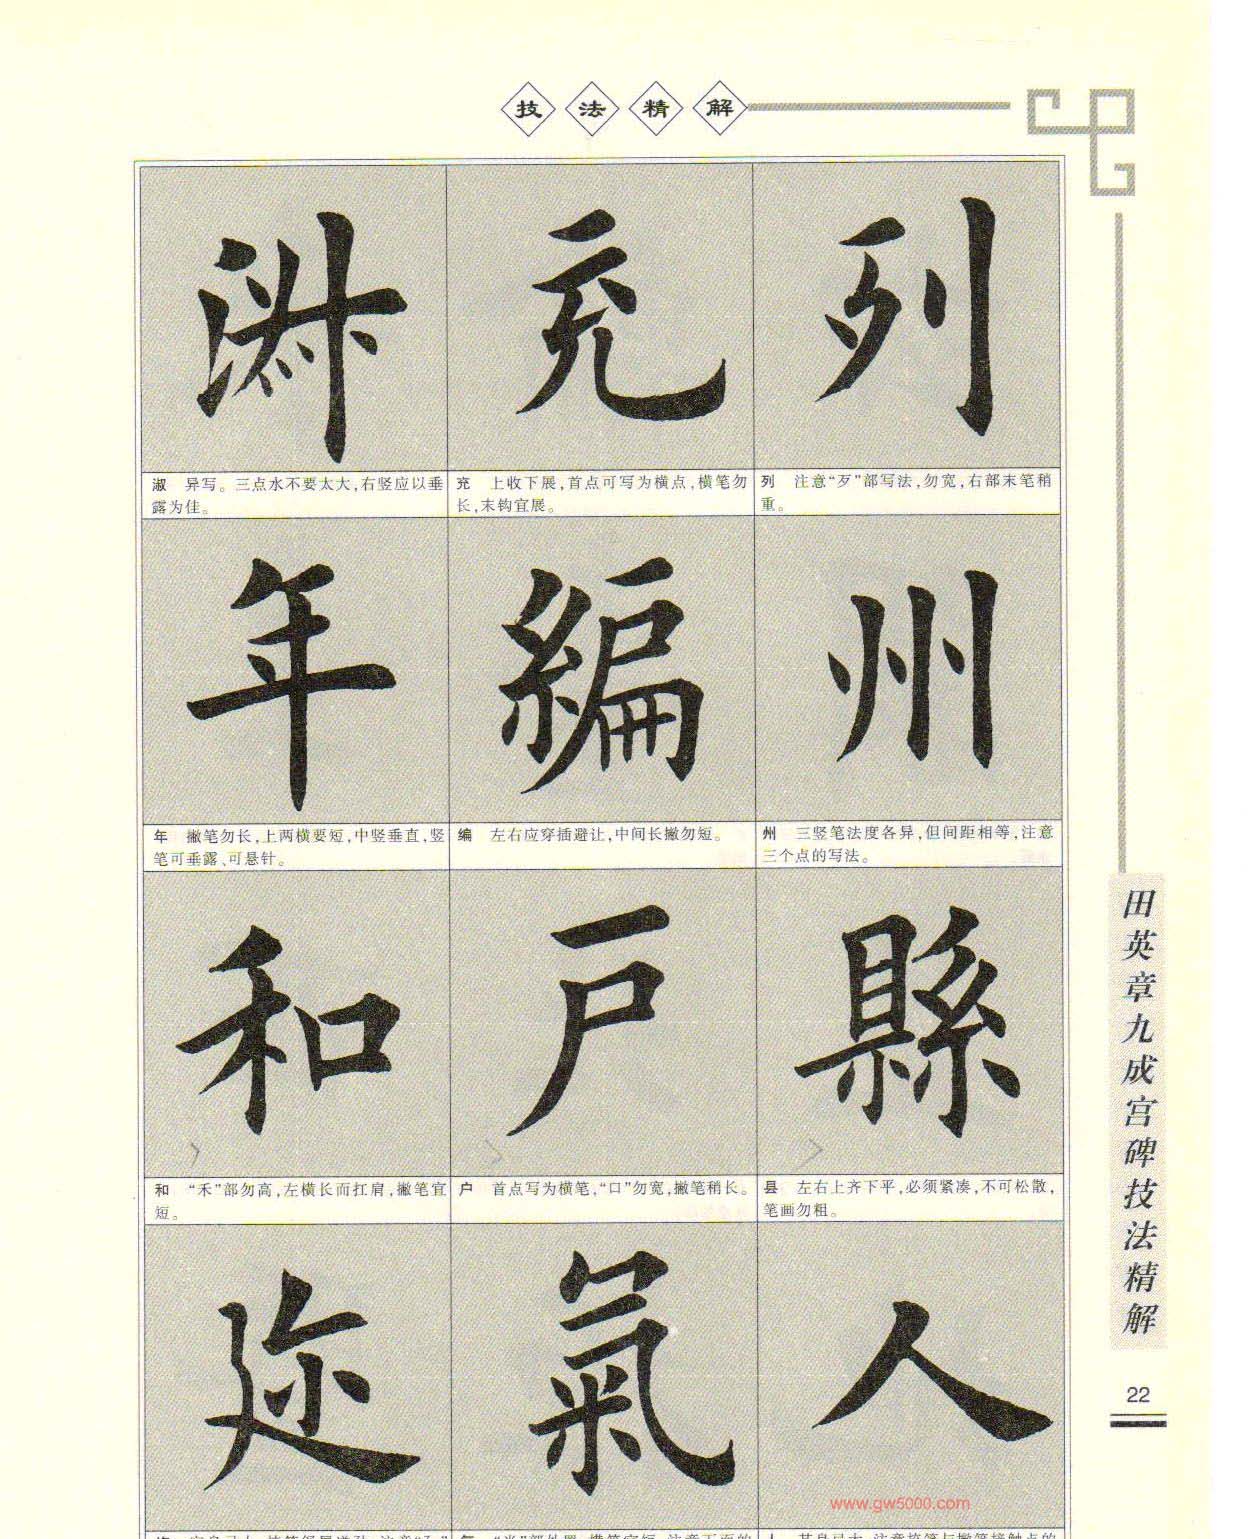 技法精解
淋 充 列
淑 异写。三点水不要太大，右竖应以垂
露为佳。
充 上收下展，首点可写为横点，横笔勿
长，末钩宜展。
列 注意“歹”部写法，勿宽，右部末笔稍
重。
年 編 州
年 撇笔勿长，上两横要短，中竖垂直，竖
笔可垂露、可悬针。
编 左右应穿插避让，中间长撇勿短。
州 三竖笔法度各异，但间距相等，注意
三个点的写法。
和 戸 縣
和 “禾”部勿高，左横长而扛肩，撇笔宜
短。
户 首点写为横笔，“口”勿宽，撇笔稍长。
县 左右上齐下平，必须紧凑，不可松散，
笔画勿粗。
迩 氣 人
田英章九成宫碑技法精解
22
www.gw5000.com